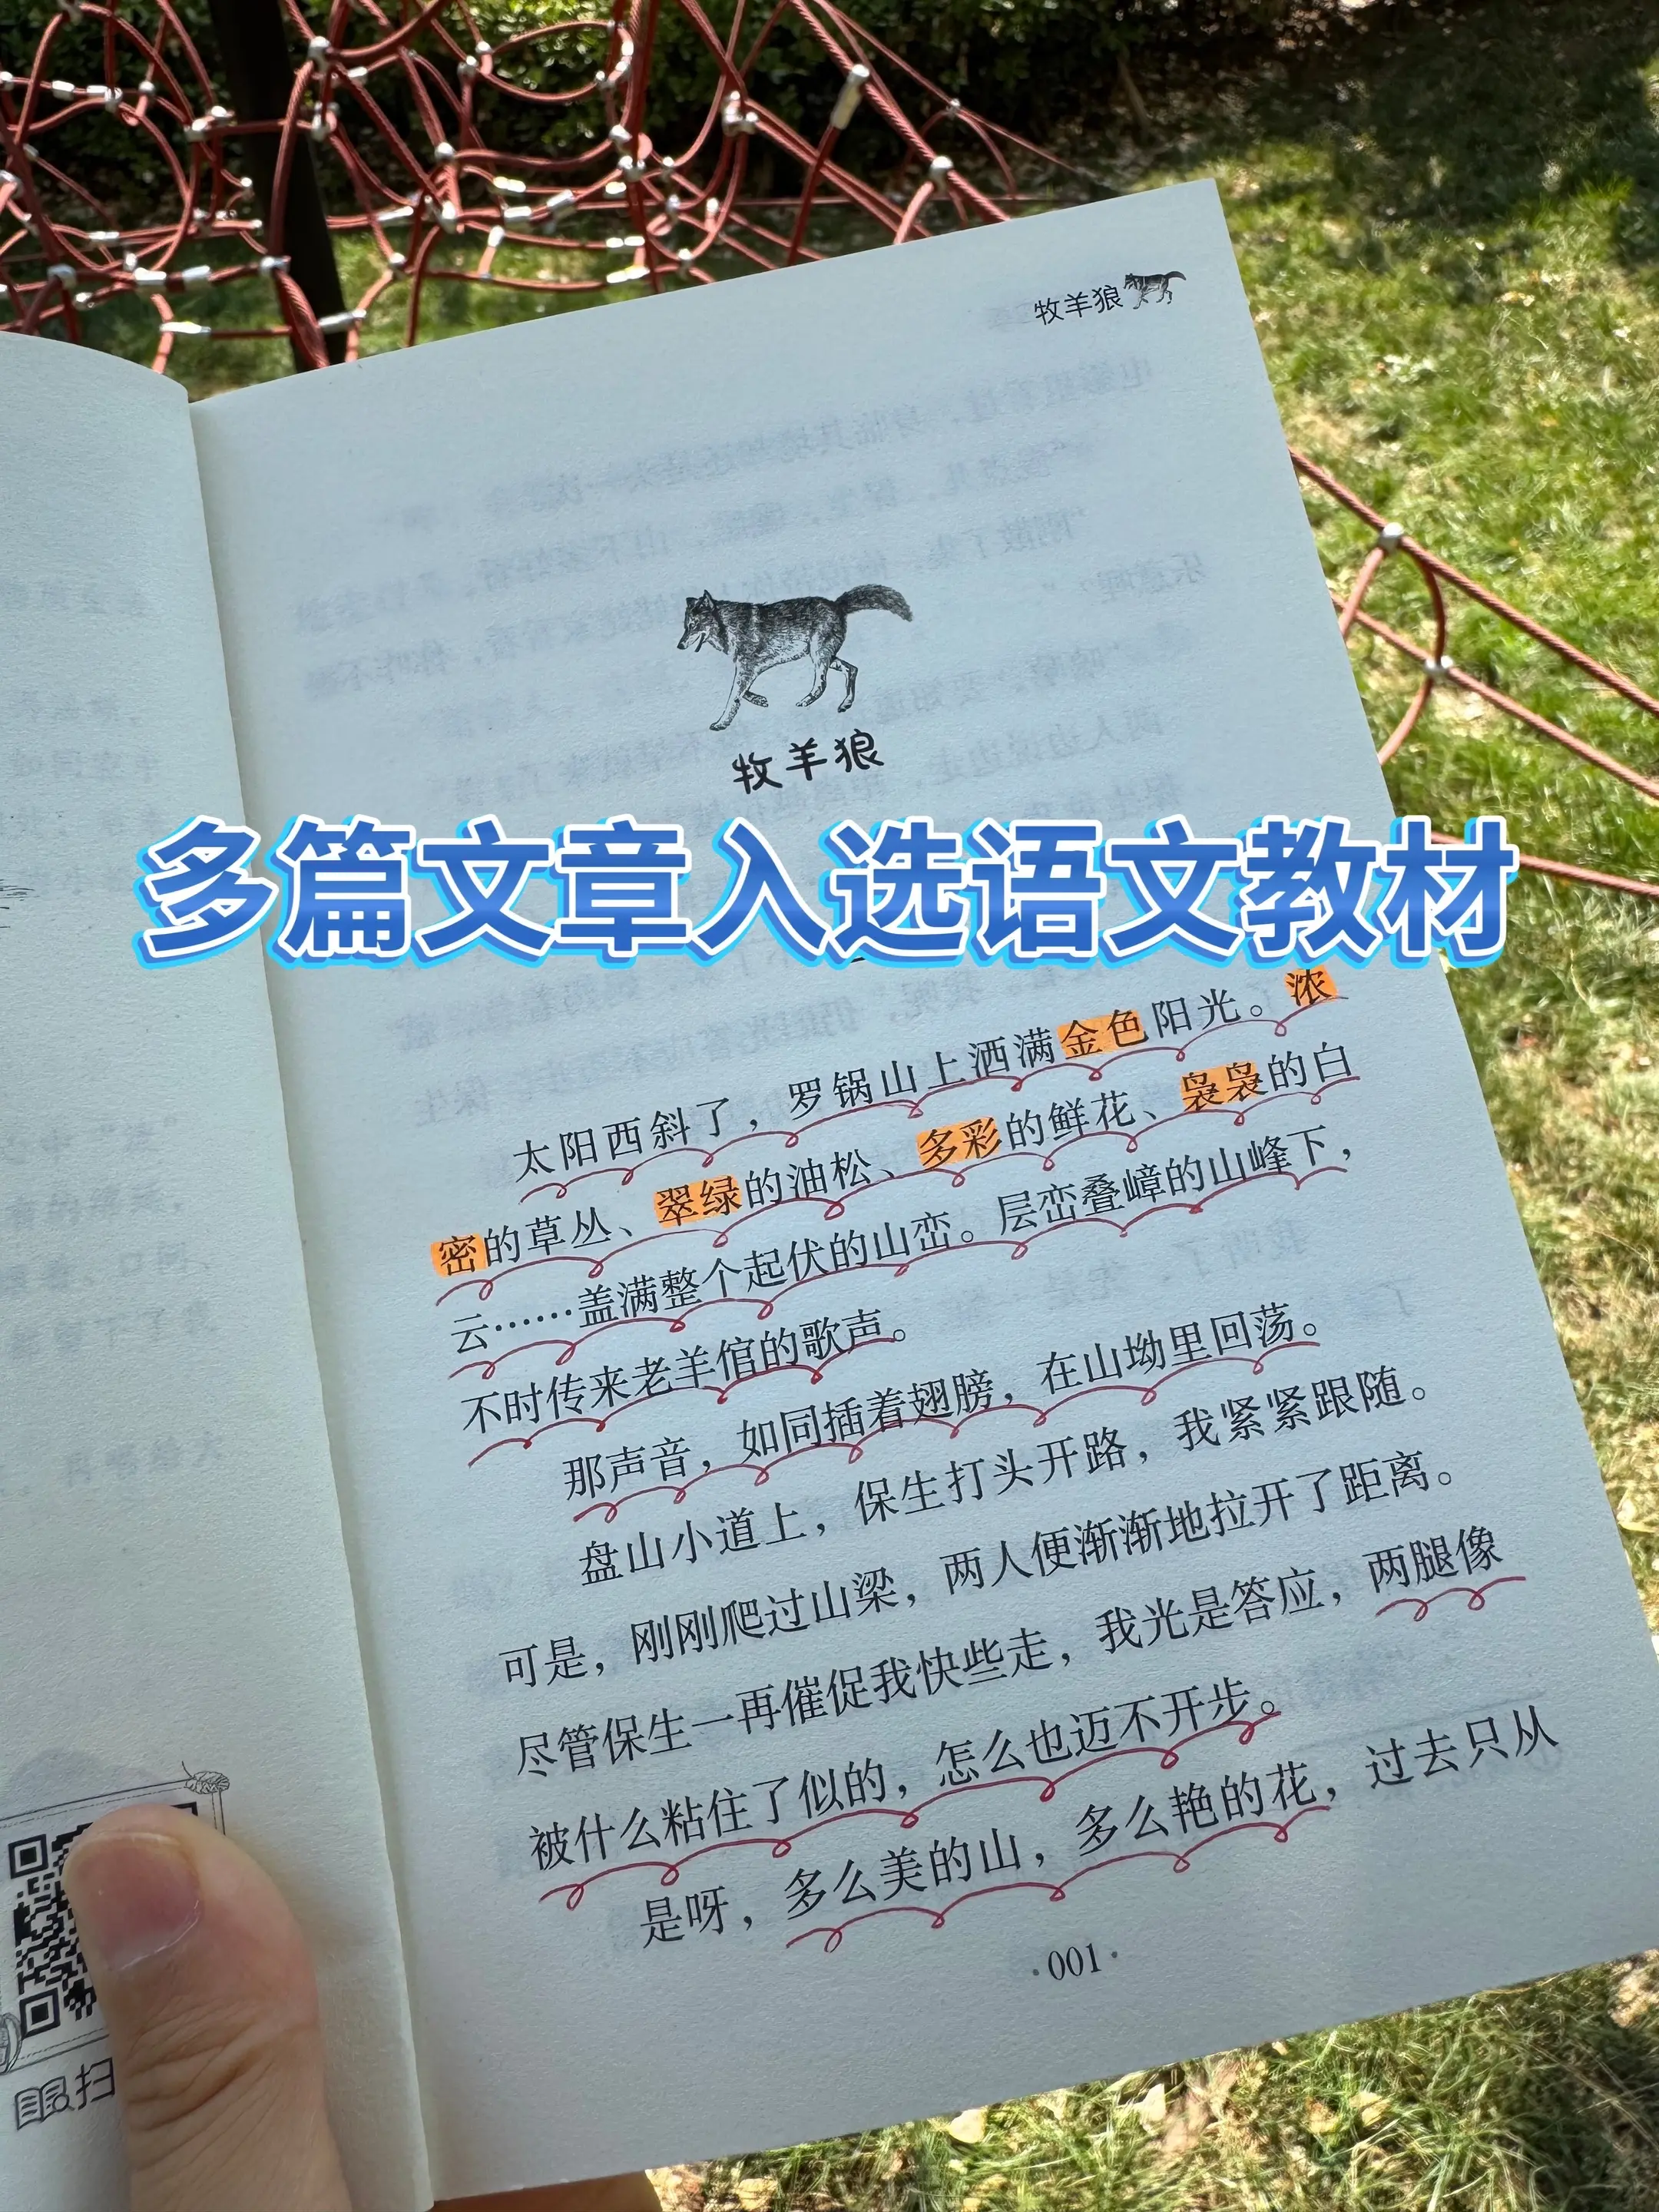 牧羊狼
牧羊狼
多篇文章入选语文教材
太阳西斜了，罗锅山上洒满金色阳光。浓
密的草丛、翠绿的油松、多彩的鲜花、袅袅的白
云……盖满整个起伏的山峦。层峦叠嶂的山峰下，
不时传来老羊倌的歌声。
那声音，如同插着翅膀，在山坳里回荡。
盘山小道上，保生打头开路，我紧紧跟随。
可是，刚刚爬过山梁，两人便渐渐地拉开了距离。
尽管保生一再催促我快些走，我光是答应，两腿像
被什么粘住了似的，怎么也迈不开步。
是呀，多么美的山，多么艳的花，过去只从
·001·
扫